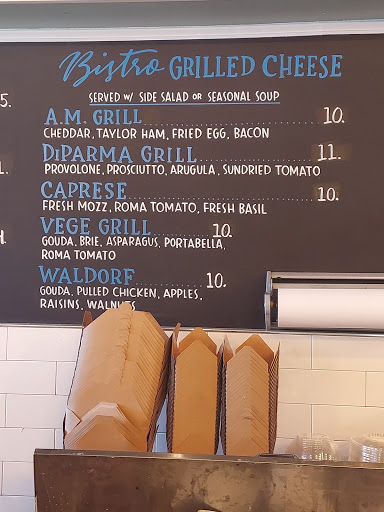 Bistro GRILLED CHEESE
SERVED W/ SIDE SALAD OR SEASONAL SOUP
5.
A.M. GRILL 10.
CHEDDAR, TAYLOR HAM, FRIED EGG, BACON
DiPARMA GRILL 11.
PROVOLONE, PROSCIUTTO, ARUGULA, SUNDRIED TOMATO
CAPRESE 10.
FRESH MOZZ, ROMA TOMATO, FRESH BASIL
VEGE GRILL 10.
GOUDA, BRIE, ASPARAGUS, PORTABELLA,
ROMA TOMATO
WALDORF 10.
GOUDA, PULLED CHICKEN, APPLES,
RAISINS, WALNUTS